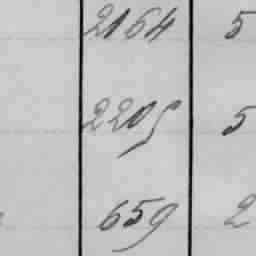 2164 5
2209 5
659 2